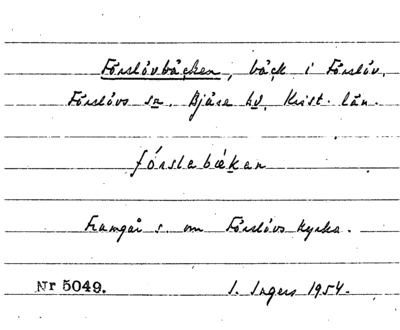 Förslövbäcken, bäck i Förslöv,
Förslövs sn. Bjäre hd, Krist. län.
fórslabækan
Framgår s. om Förslövs kyrka.
Nr 5049. I. Ingers 1954.